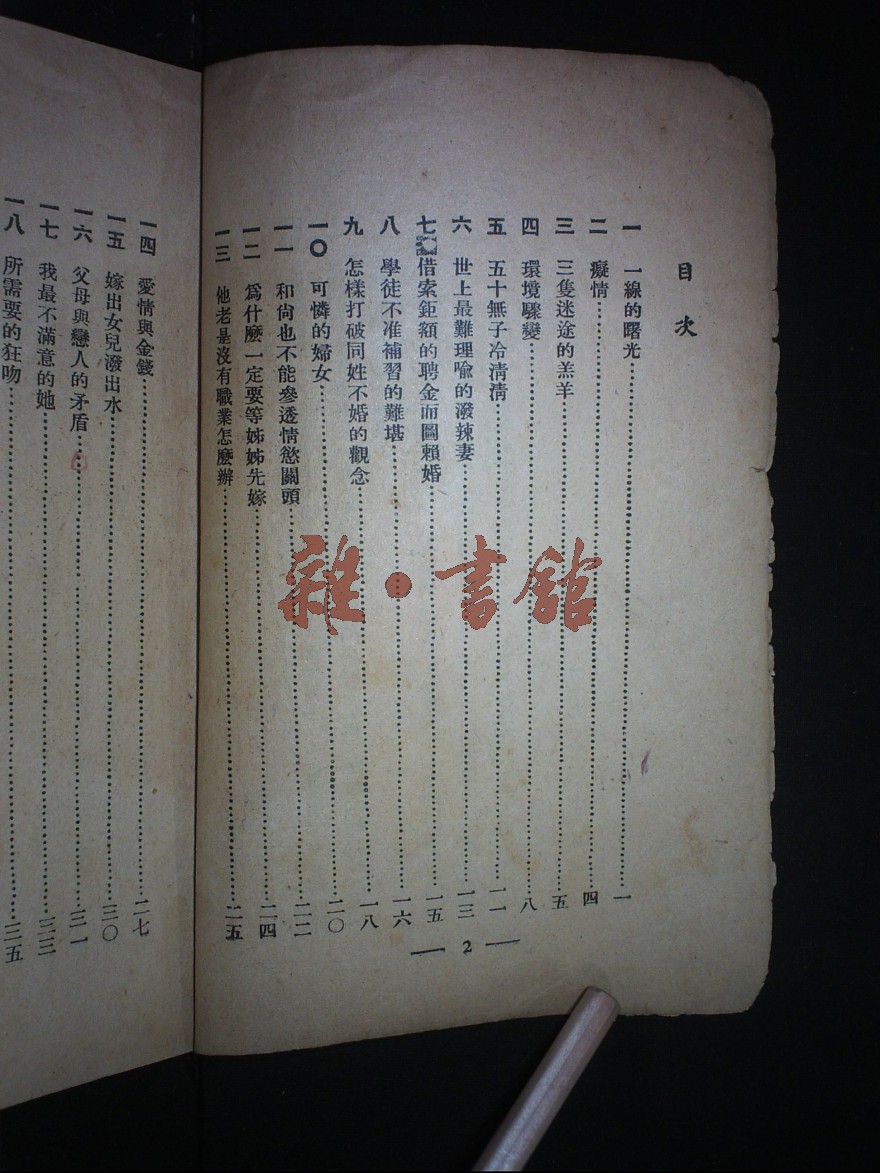 目次
一 一線的曙光 一
二 癡情 四
三 三隻迷途的羔羊 五
四 環境驟變 八
五 五十無子冷清清 一一
六 世上最難理喻的潑辣妻 一三
七 借索鉅額的聘金而圖賴婚 一五
八 學徒不准補習的難堪 一六
九 怎樣打破同姓不婚的觀念 一八
一〇 可憐的婦女 二〇
一一 和尙也不能參透情慾關頭 二二
一二 爲什麼一定要等姊姊先嫁 二四
一三 他老是沒有職業怎麼辦 二五
— 2 —
一四 愛情與金錢 二七
一五 嫁出女兒潑出水 三〇
一六 父母與戀人的矛盾 三一
一七 我最不滿意的她 三三
一八 所需要的狂吻 三五
雜·書館